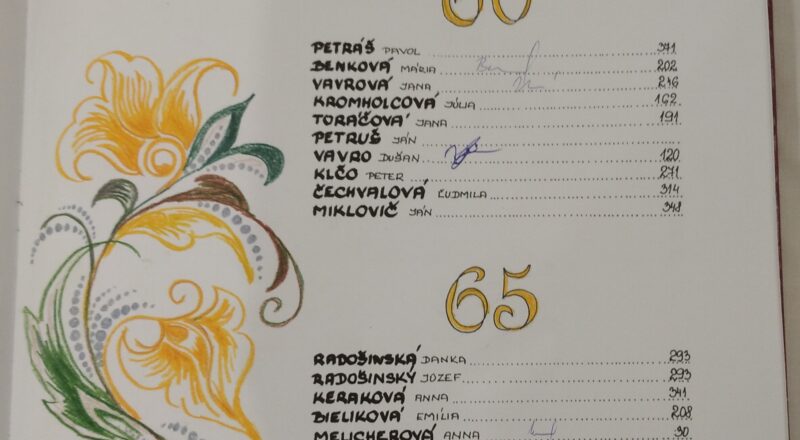 60
PETRÁŠ PAVOL 371
BENKOVÁ MÁRIA 202
VAVROVÁ JANA 246
KROMHOLCOVÁ JÚLIA 162
TORÁČOVÁ JANA 191
PETRUŠ JÁN
VAVRO DUŠAN 120
KLČO PETER 271
ČECHVALOVÁ ĽUDMILA 314
MIKLOVIČ JÁN 348
65
RADOŠINSKÁ DANKA 293
RADOŠINSKÝ JOZEF 293
KERAKOVÁ ANNA 341
BIELIKOVÁ EMÍLIA 208
MELICHEROVÁ ANNA 30